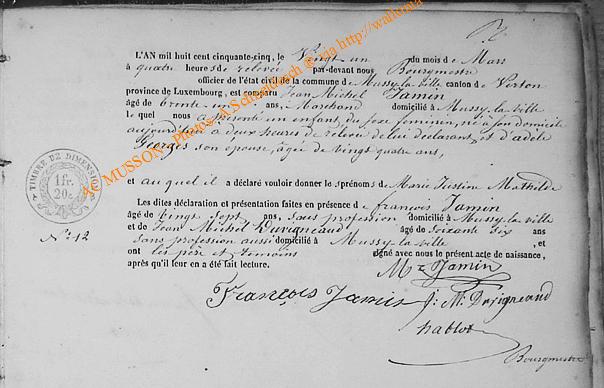 L'AN mil huit cent cinquante-cinq, le Vingt un du mois de Mars
à quatre heures de relevée par-devant nous Bourgmestre
officier de l'état civil de la commune de Mussy-la-ville canton de Virton
province de Luxembourg, est comparu Jean Michel Jamin
âgé de trente un ans, Marchand domicilié à Mussy-la-ville
lequel nous a présenté un enfant, du sexe féminin, né à son domicile
aujourd'hui à deux heures de relevée de lui déclarant, et d'adèle
Georges son épouse, âgée de vingt quatre ans,
et auquel il a déclaré vouloir donner les prénoms de Marie Justine Mathilde
Les dites déclaration et présentation faites en présence de françois Jamin
âgé de vingt sept ans, sans profession domicilié à Mussy-la-ville
et de Jean Michel Duvigneaud âgé de soixante six ans
sans profession aussi domicilié à Mussy-la-ville, et
ont les père et temoins signé avec nous le présent acte de naissance,
après qu'il leur en a été fait lecture.
TIMBRE DE DIMENSION
1 fr.
20 c.
N° 12
Jamin
François Jamin
J: M: Duvigneaud
hablot
Bourgmestre
MUSSON Photos
http://